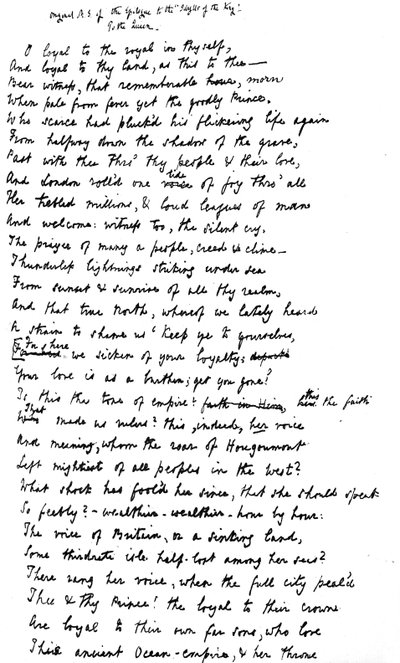 original M.S. of the Epilogue to the "Idylls of the King".
To the Queen.
O loyal to the royal in thyself,
And loyal to thy land, as this to thee—
Bear witness, that rememberable hour, morn
When pale from fever yet the goodly Prince,
Who scarce had pluck'd his flickering life again
From halfway down the shadow of the grave,
Past with thee thro' thy people & their love,
And London roll'd one tide of joy thro' all
Her trebled millions, & loud leagues of man
And welcome: witness too, the silent cry,
The prayer of many a people, creed & clime—
Thunderless lightnings striking under sea
From sunset & sunrise of all thy realm,
And that true North, whereof we lately heard
A strain to shame us 'Keep ye to yourselves,
For here
we sicken of your loyalty:
Your love is as a burthen; get you gone!'
this
Is this the tone of empire? faith in Him, here the faith
That
made us rulers? this, indeed, her voice
And meaning, whom the roar of Hougoumont
Left mightiest of all peoples in the west?
What shock has fool'd her since, that she should speak
So feebly? - wealthier - wealthier - hour by hour:
The voice of Britain, or a sinking land,
Some thirdrate isle half-lost among her seas?
There rang her voice, when the full city peal'd
Thee & thy Prince! the loyal to their crown
Are loyal to their own far sons, who love
Their ancient Ocean-empire, & her throne